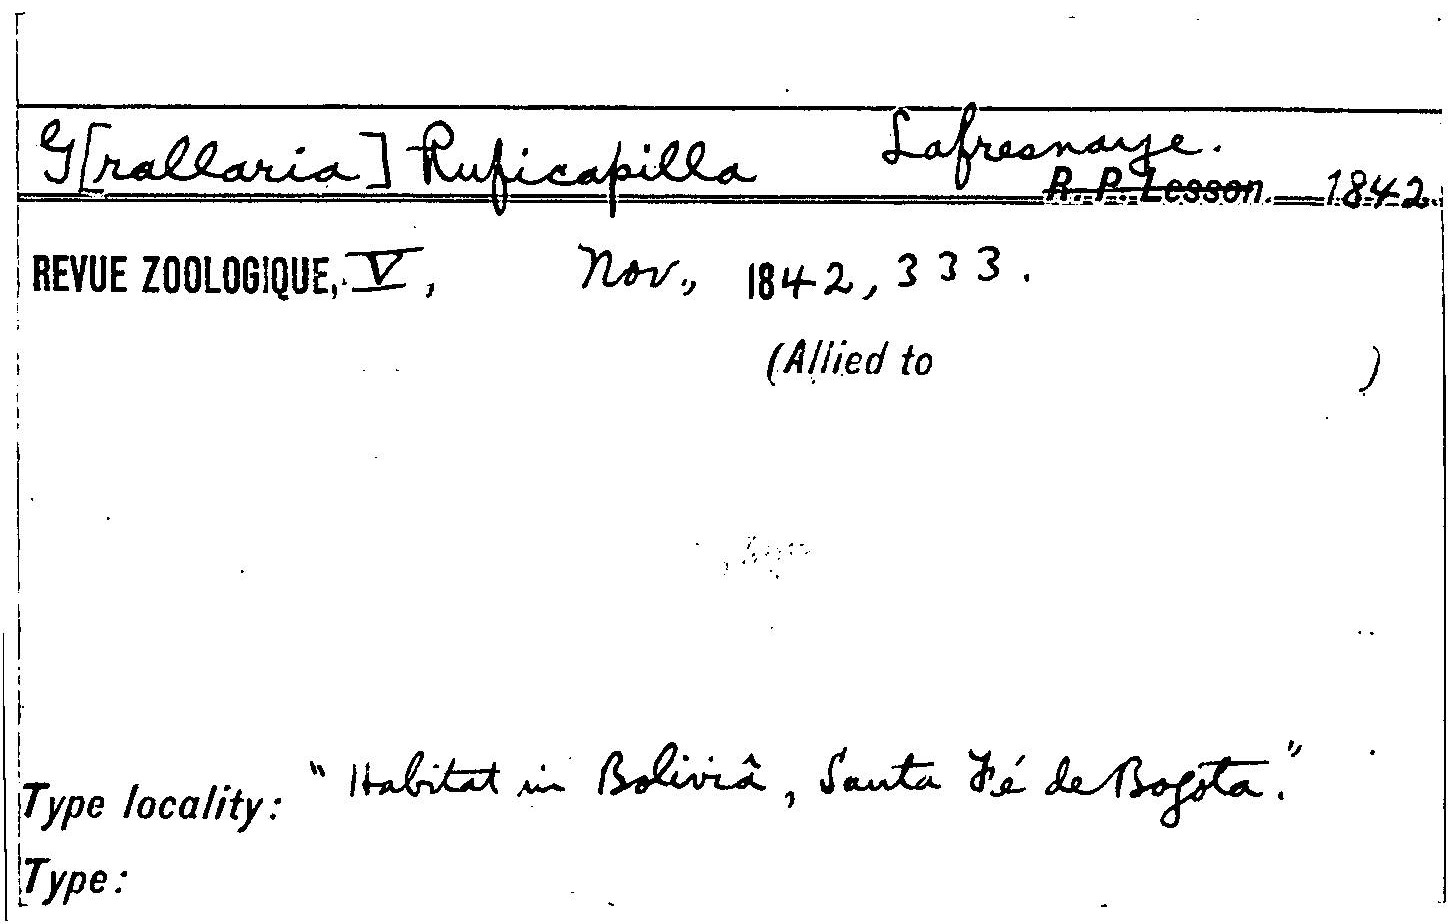 G[rallaria] Ruficapilla Lafresnaye.
R. P. Lesson. 1842.
REVUE ZOOLOGIQUE, V, Nov., 1842, 333.
(Allied to )
Type locality: "Habitat in Boliviâ, Santa Fé de Bogota."
Type: